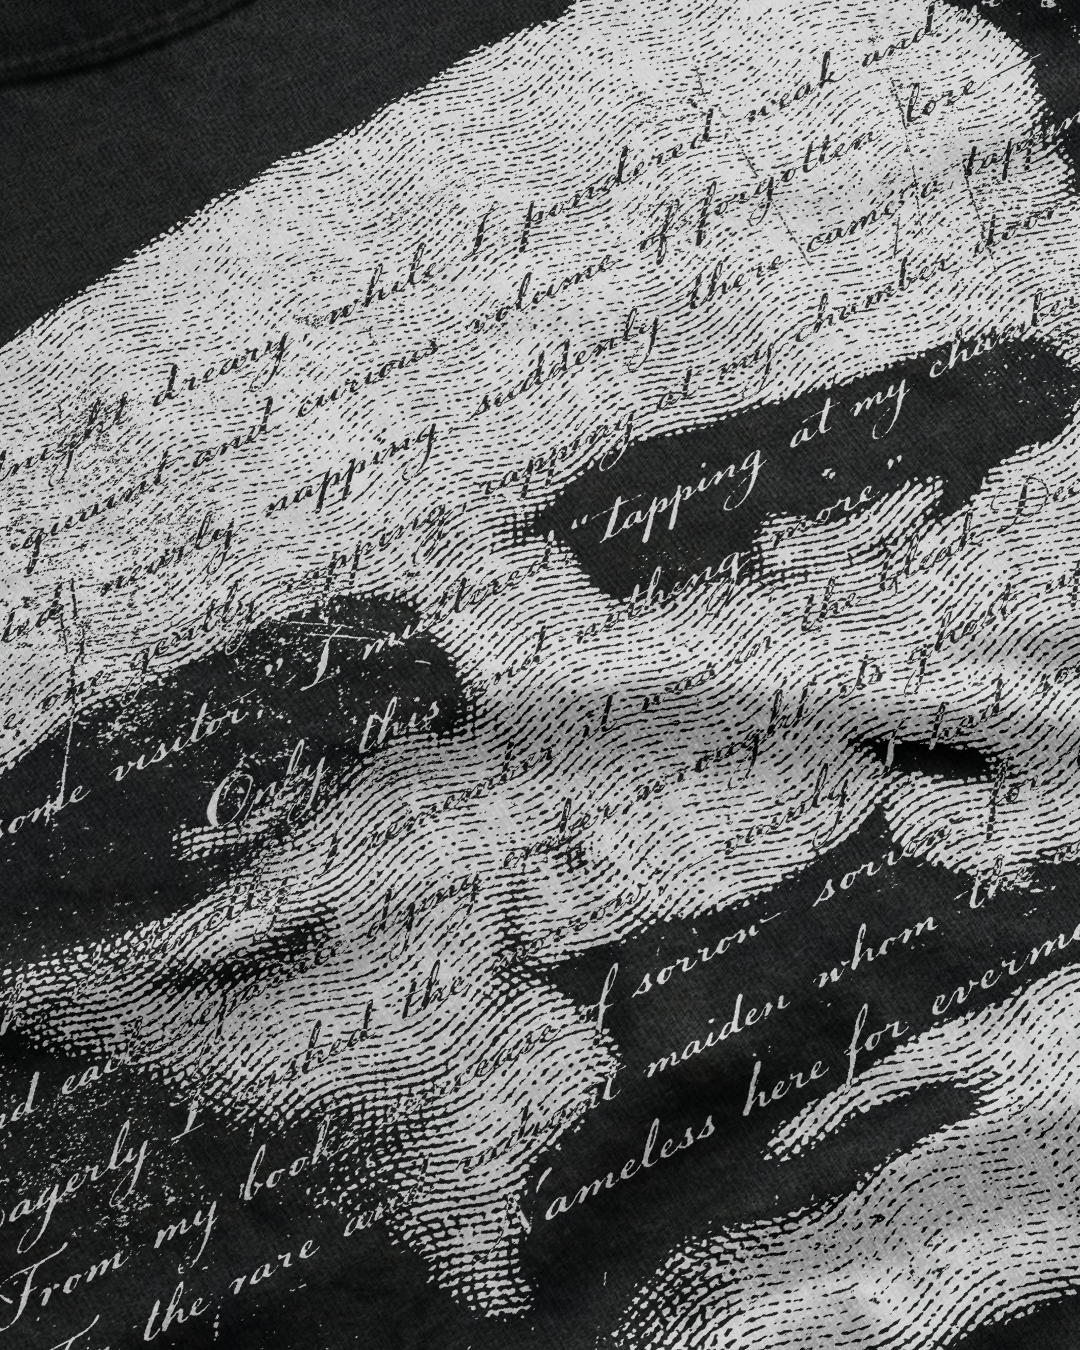 dreary, while I pondered weak and
quaint and curious volume of forgotten lore
nearly napping, suddenly there came a tapping
one gently rapping, rapping at my chamber door
some visitor," I muttered, "tapping at my chamber
Only this and nothing more."
I remember it was in the bleak Dec
and each separate dying ember wrought its ghost up
Eagerly I wished the vainly I had so
From my books surcease of sorrow sorrow for
the rare and radiant maiden whom the
Nameless here for evermo